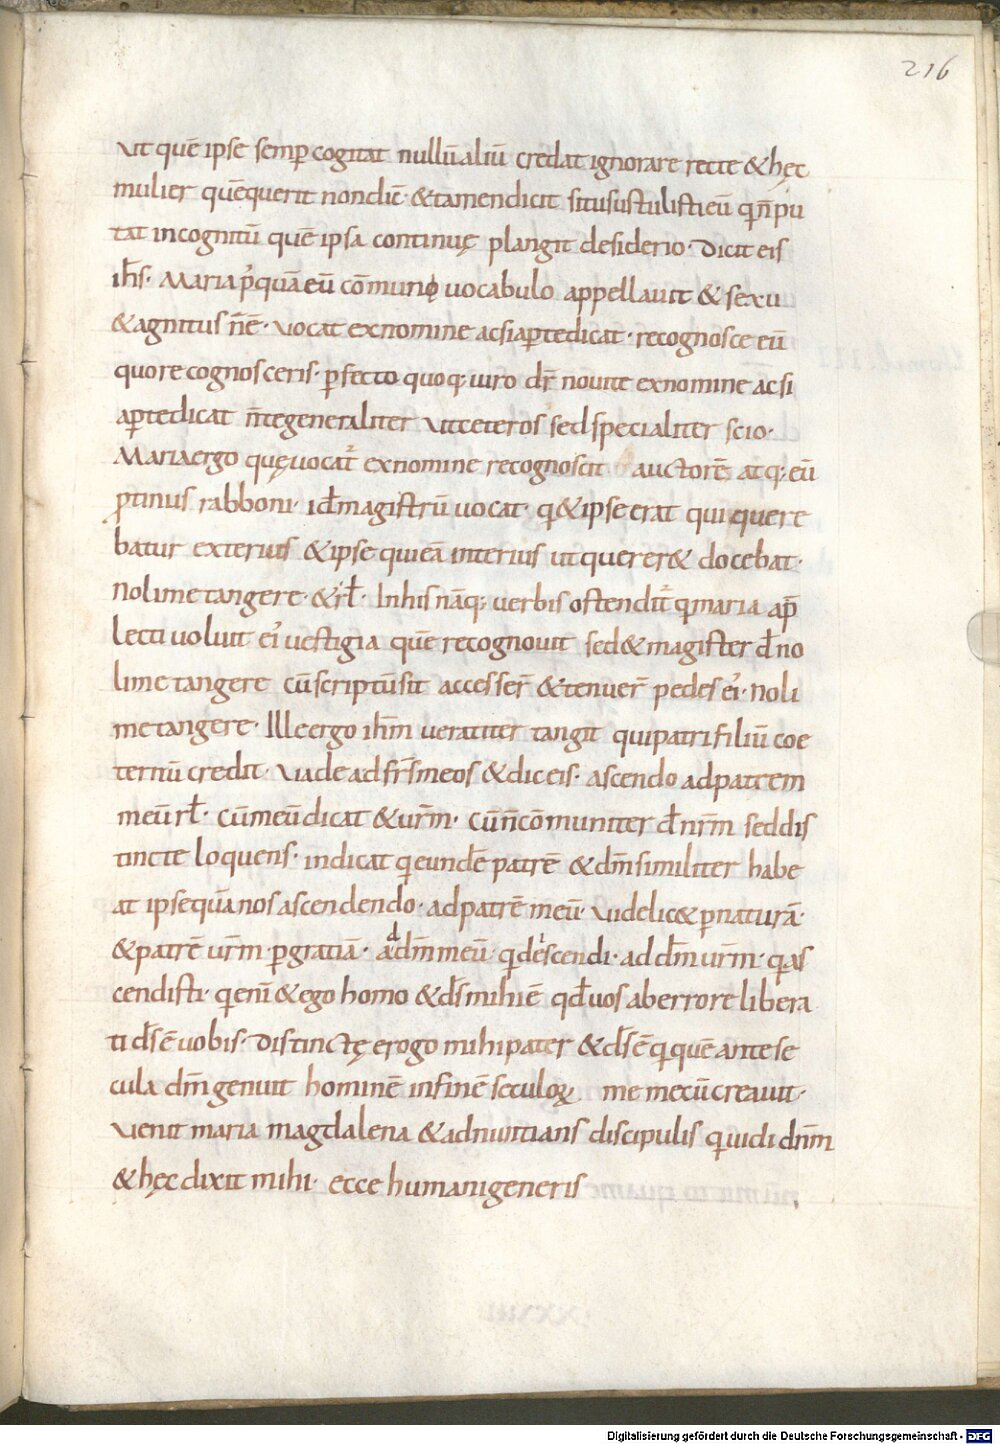 216
ut quē ipse semp cogitat nullū aliū credat ignorare recte & hęc
mulier quē querit non dic̄ · & tamen dicit si tu sustulisti eū q n̄ pu
tat incognitū quē ipsa continuę plangit desiderio · Dicit eis
ih̄s · Maria p̓quā eū cōmuni uocabulo appellauit & sexu
& agnitus n̄ ē · uocat ex nomine ac si apte dicat · recognosce eū
quo re cognosceris · pfecto quoq; uiro dr̄ noui te ex nomine ac si
apte dicat n̄ te generaliter ut ceteros sed specialiter scio ·
Maria ergo quę uocat̓ ex nomine recognoscit auctorē atq; eū
ptinus rabboni · id̄ magistrū uocat · q & ipse erat qui quere
batur exterius & ipse qui eā interius ut querer& docebat ·
noli me tangere · & rł · In his nāq; uerbis ostendit̓ q maria ap̄
lecti uoluit ei̓ uestigia quē recognouit sed & magister d̄ no
li me tangere cū scriptū sit accesser̄ & tenuer̄ pedes ei̓ · noli
me tangere · Ille ergo ih̄m ueraciter tangit qui patri filiū coe
ternū credit · uade ad fr̄s meos & dic eis · ascendo ad patrem
meū rł · cū meū dicat & ur̄m · cū n̄ cōmuniter d̄ nr̄m sed dis
tincte loquens · indicat q eundē patrē & dm̄ similiter habe
at ipse quā nos ascendendo · ad patrē meū · uidelic& p naturā ·
& patrē ur̄m · p gratiā · ad dm̄ meū · q descendi · ad dm̄ ur̄m · q as
cendisti · q enī & ego homo & ds̄ mihi ē qd̄ uos ab errore libera
ti ds̄ ē uobis · Distinctę erogo mihi pater & ds̄ ē q quē ante se
cula dm̄ genuit hominē in finē seculoꝝ me mecū creauit ·
uenit maria magdalena & adnuntians discipulis q uidi dnm̄
& hęc dixit mihi · ecce humani generis
Digitalisierung gefördert durch die Deutsche Forschungsgemeinschaft - DFG